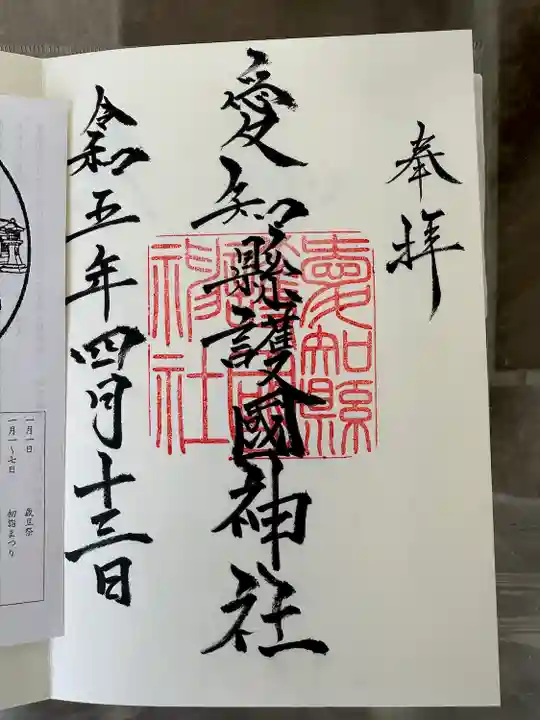 奉拝
愛知縣護國神社
愛知縣
護國
神社
令和五年四月十三日
一月一日 歳旦祭
一月一~七日 初詣まつり